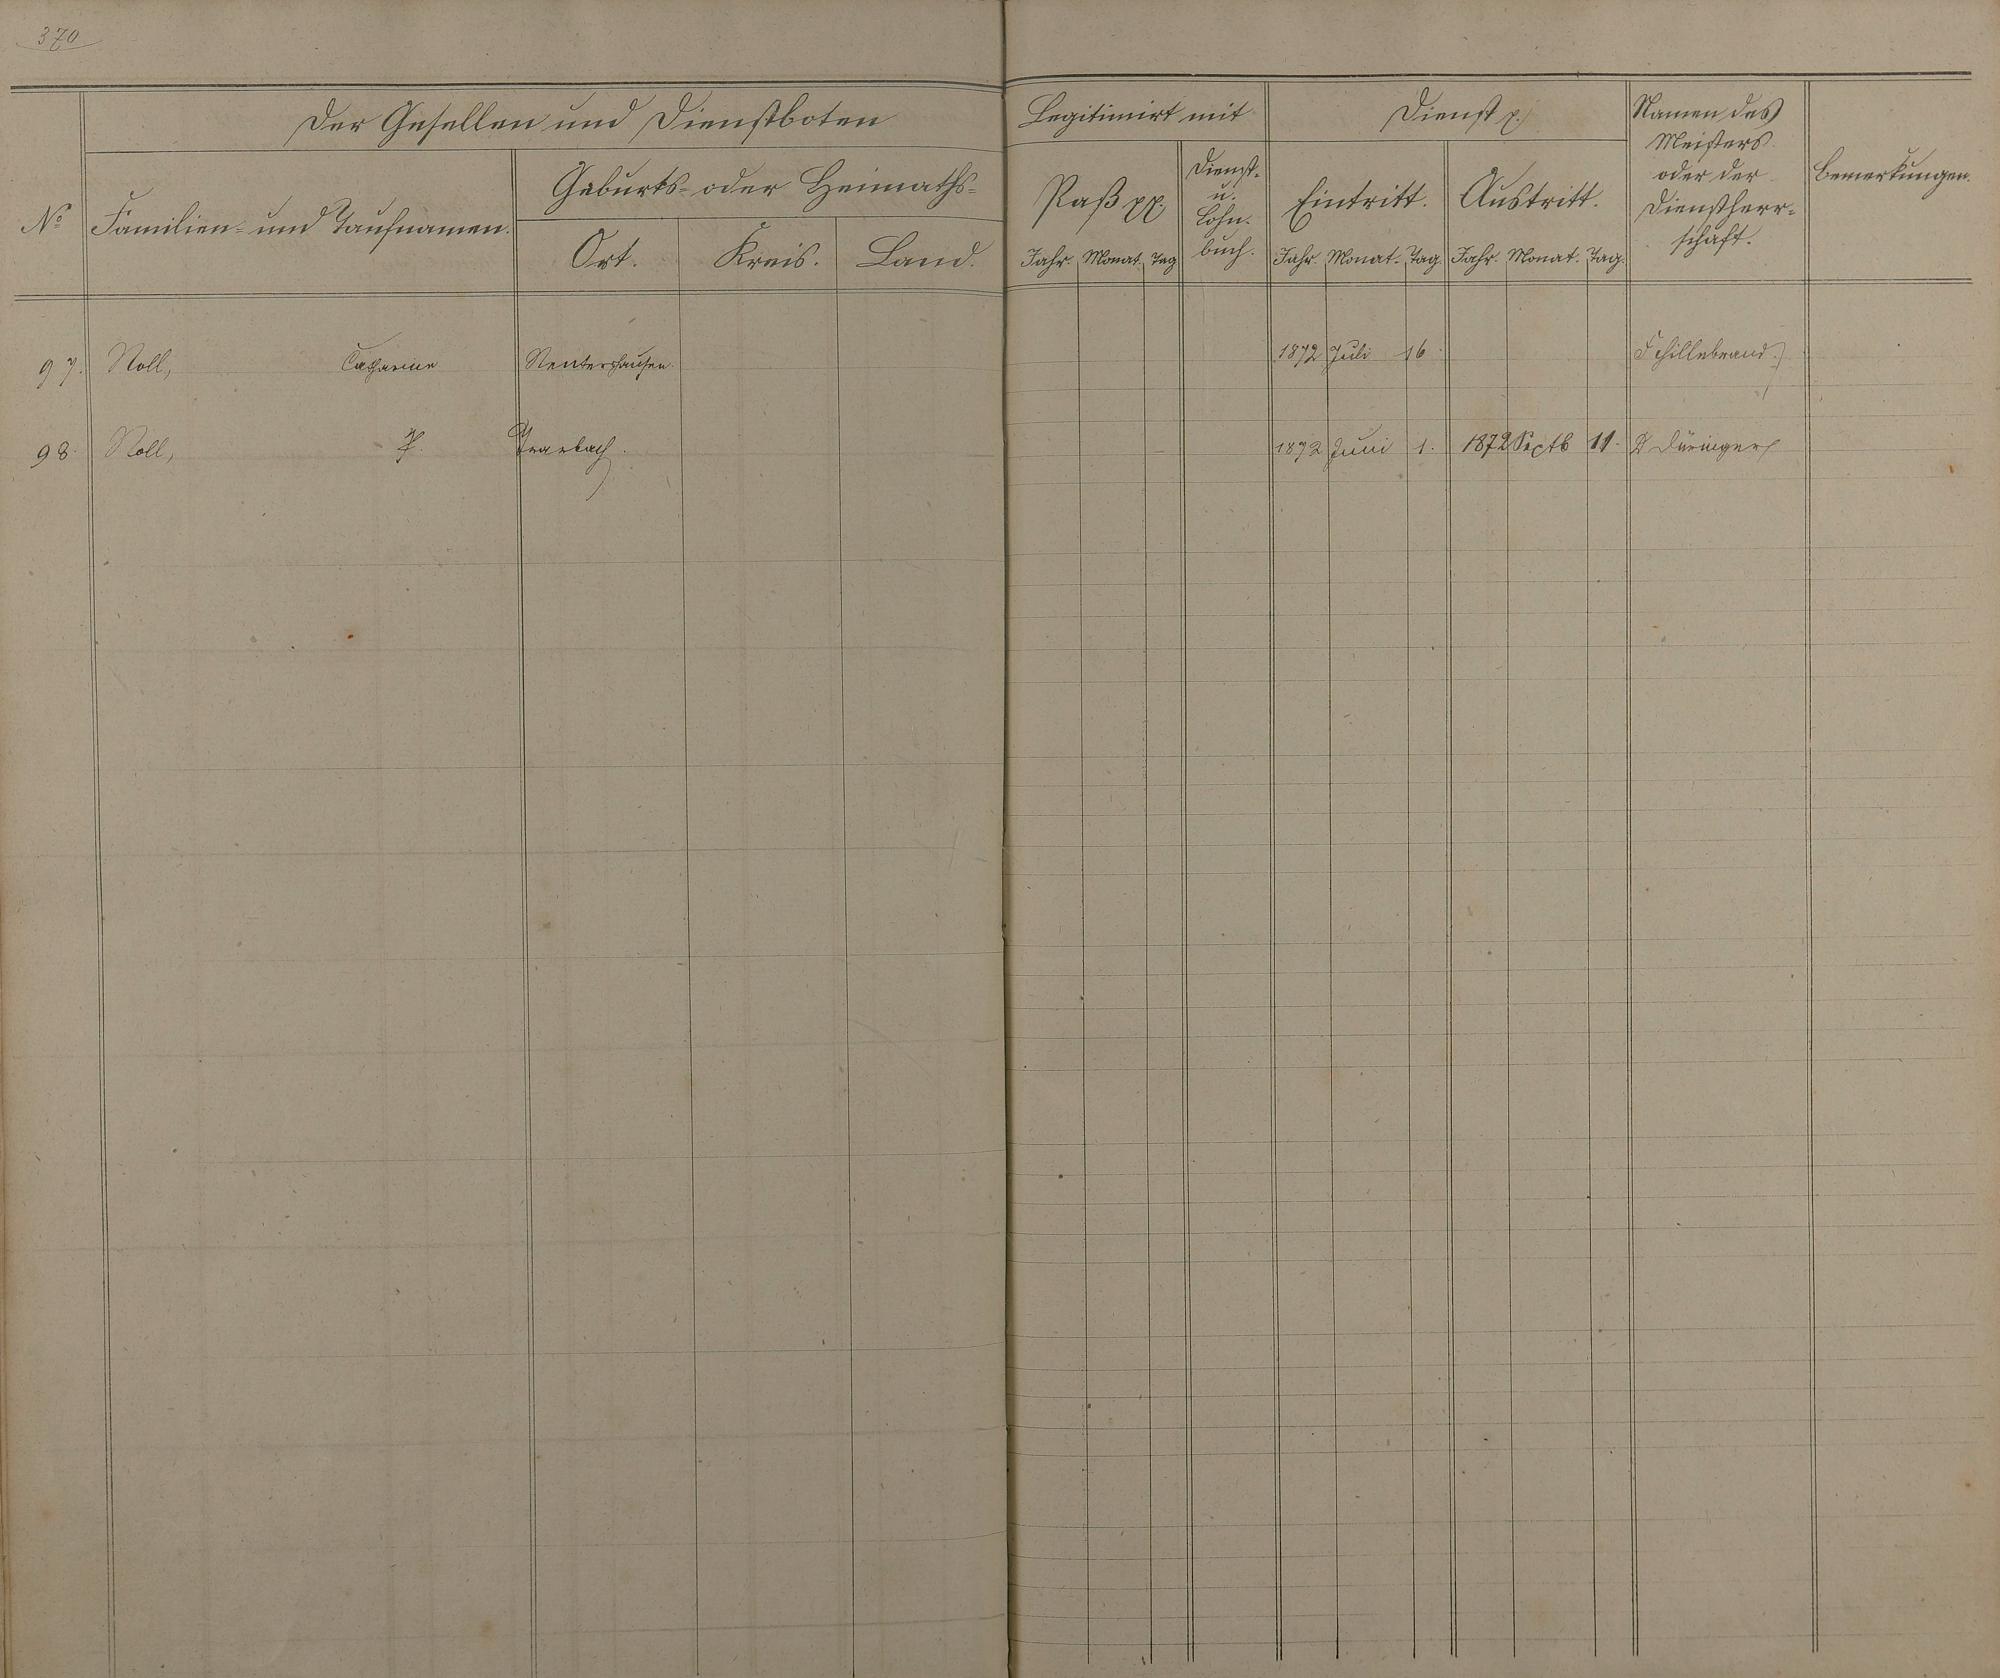 370
Der Gesellen und Dienstboten
Legitimirt mit
Dienst p.
Namen des
Meisters
oder der
Dienstherr-
schaft.
Bemerkungen.
No
Familien- und Taufnamen.
Geburts- oder Heimaths-
Ort. Kreis. Land.
Paß pp.
Jahr. Monat. Tag
Dienst-
u.
Lohn-
buch.
Eintritt.
Jahr. Monat. Tag.
Austritt.
Jahr. Monat. Tag.
97. Noll, Catharine Nentershausen. 1872 Juli 16. Hillebrand
98. Noll, Trarbach. 1872 Juni 1. 1872 Septb 11. Düringer